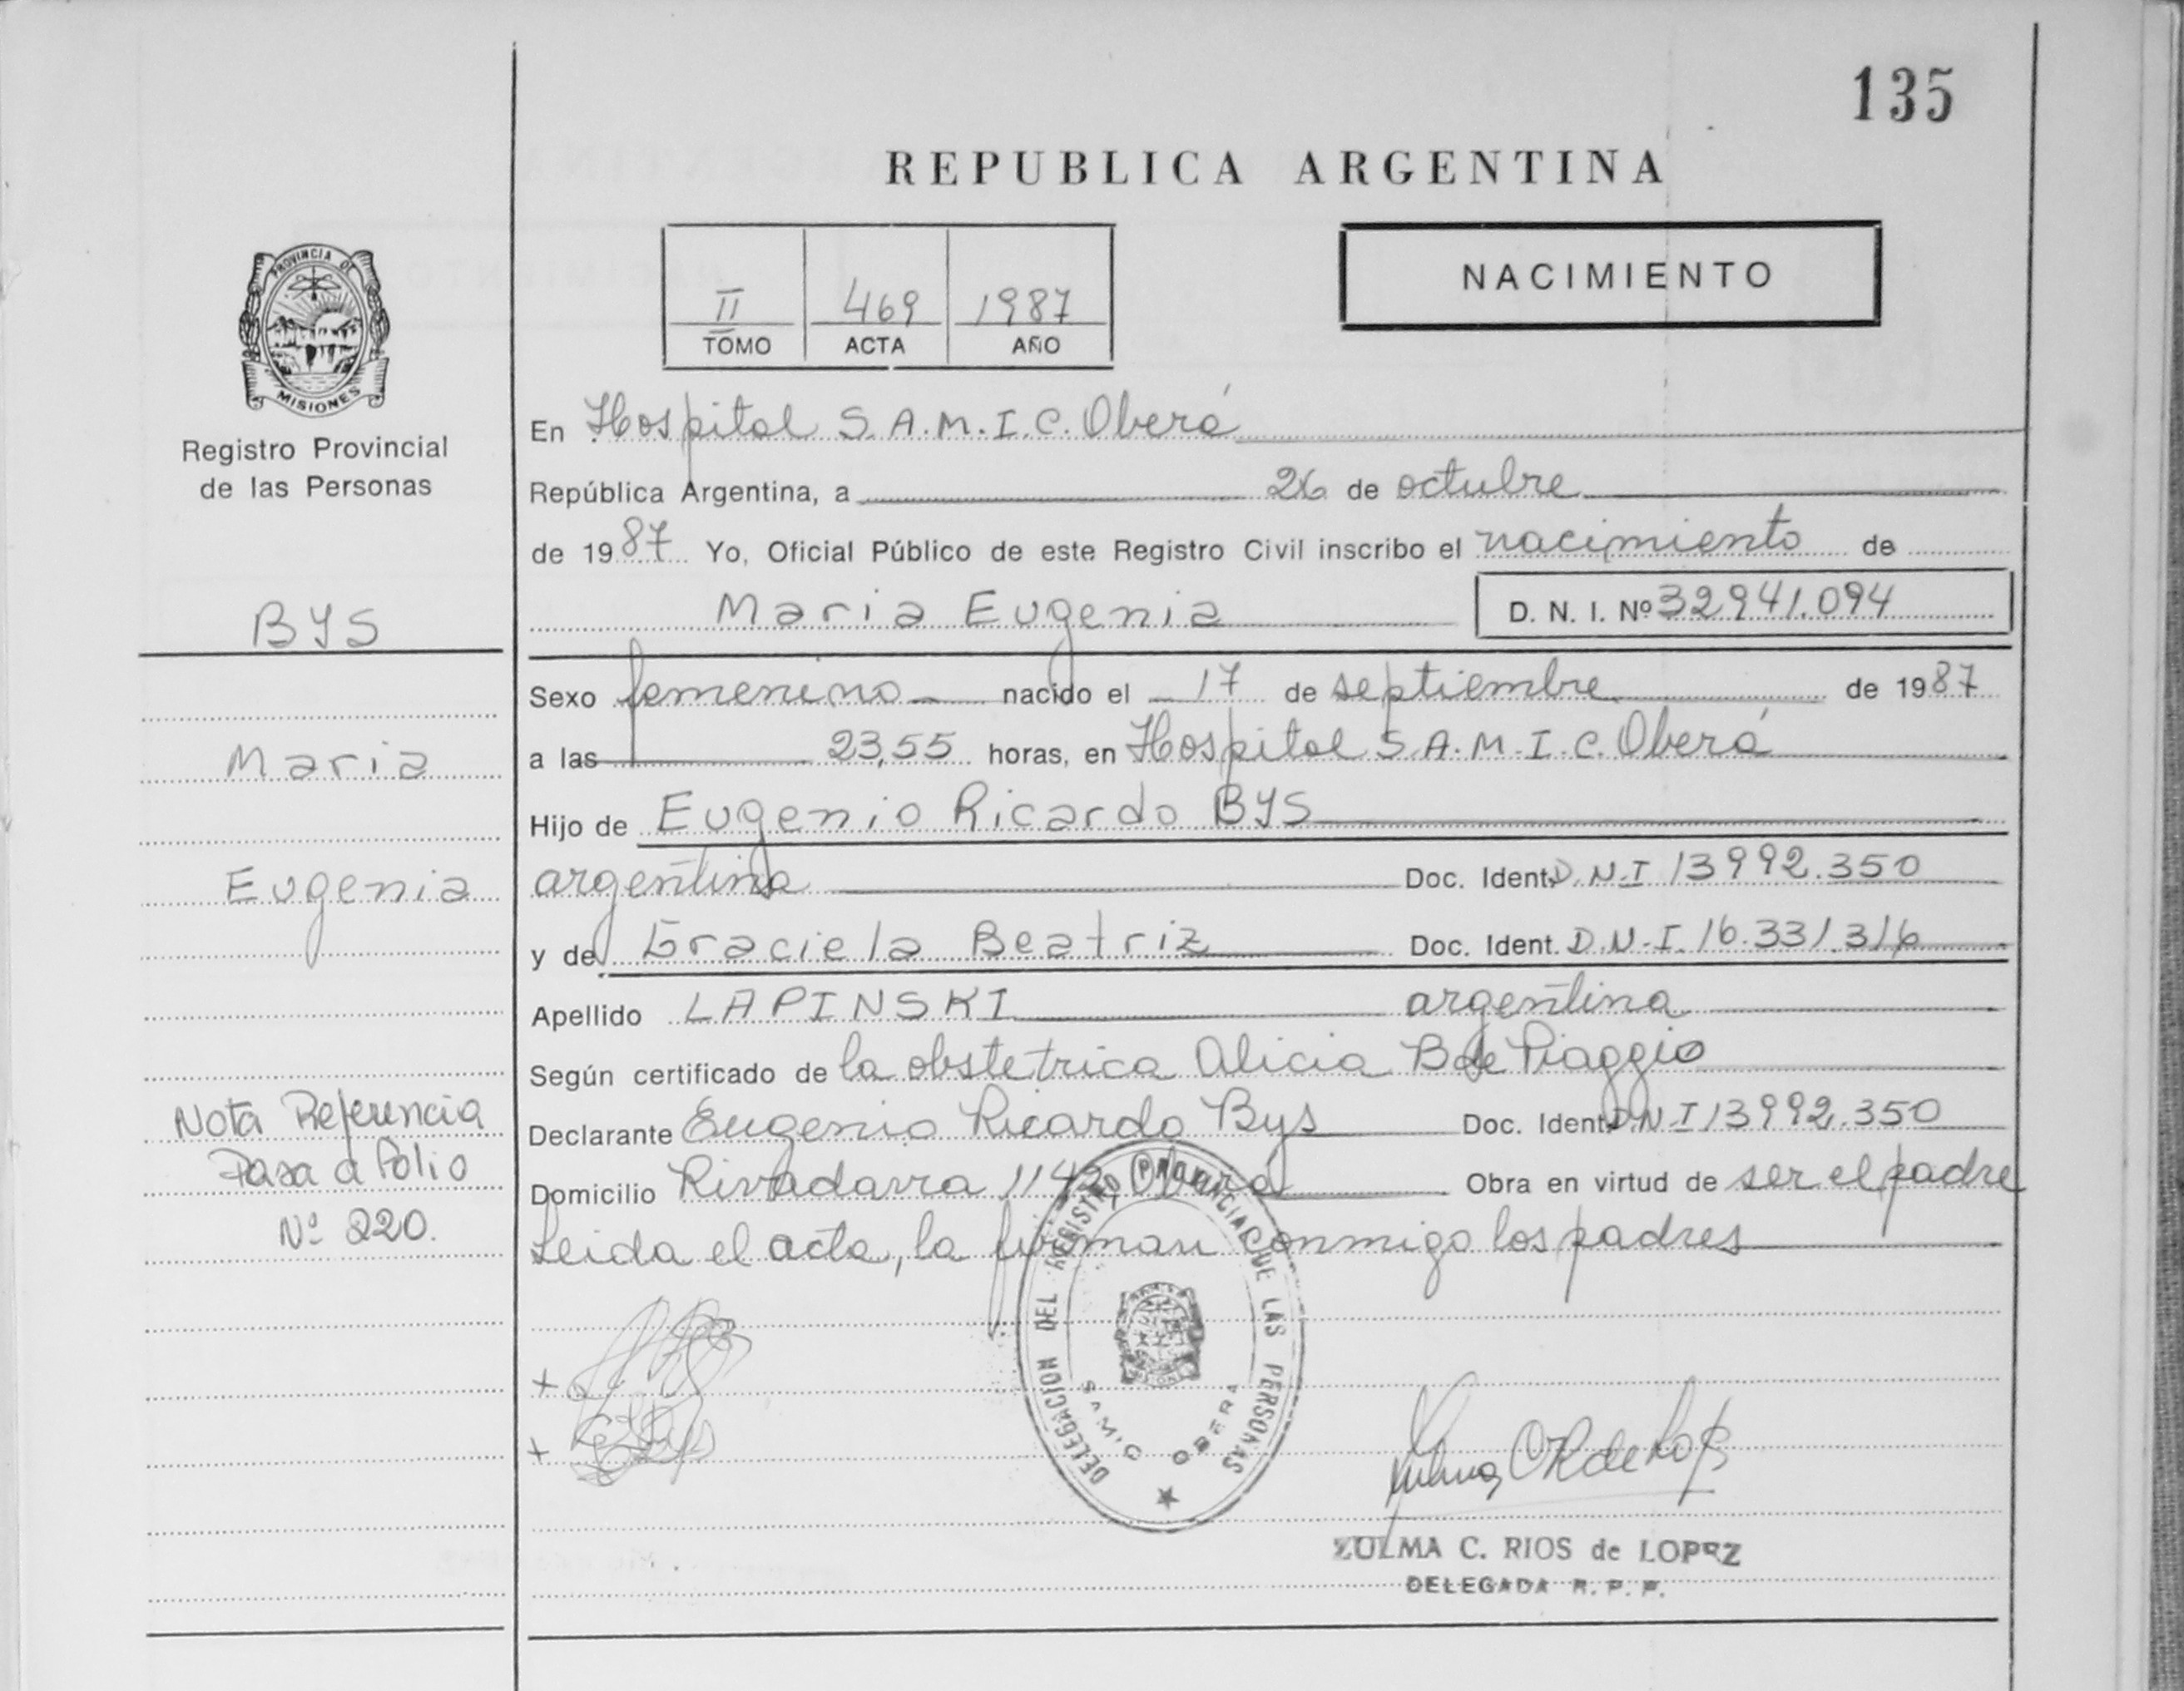 135
REPUBLICA ARGENTINA
NACIMIENTO
II 469 1987
TOMO ACTA AÑO
PROVINCIA DE
MISIONES
Registro Provincial
de las Personas
En Hospital S.A.M.I.C. Oberá
República Argentina, a 26 de octubre
de 1987 Yo, Oficial Público de este Registro Civil inscribo el nacimiento de
BYS
Maria Eugenia D. N. I. Nº 32941.094
Sexo femenino nacido el 17 de septiembre de 1987
Maria
a las 23,55 horas, en Hospital S.A.M.I.C. Oberá
Hijo de Eugenio Ricardo BYS
Eugenia
argentino Doc. Ident. D.N.I 13992.350
y de Graciela Beatriz Doc. Ident. D.N.I. 16.331.316
Apellido LAPINSKI argentina
Según certificado de la obstetrica Alicia B de Piaggio
Nota Referencia
Pasa a folio
Nº 220.
Declarante Eugenio Ricardo Bys Doc. Ident. D.N.I 13992.350
Domicilio Rivadavia 1142 Oberá Obra en virtud de ser el padre
Leida el acta, la firman conmigo los padres
+
+
DELEGACION DEL REGISTRO PROVINCIAL DE LAS PERSONAS
SAMIC OBERA
ZULMA C. RIOS de LOPEZ
DELEGADA R. P. P.